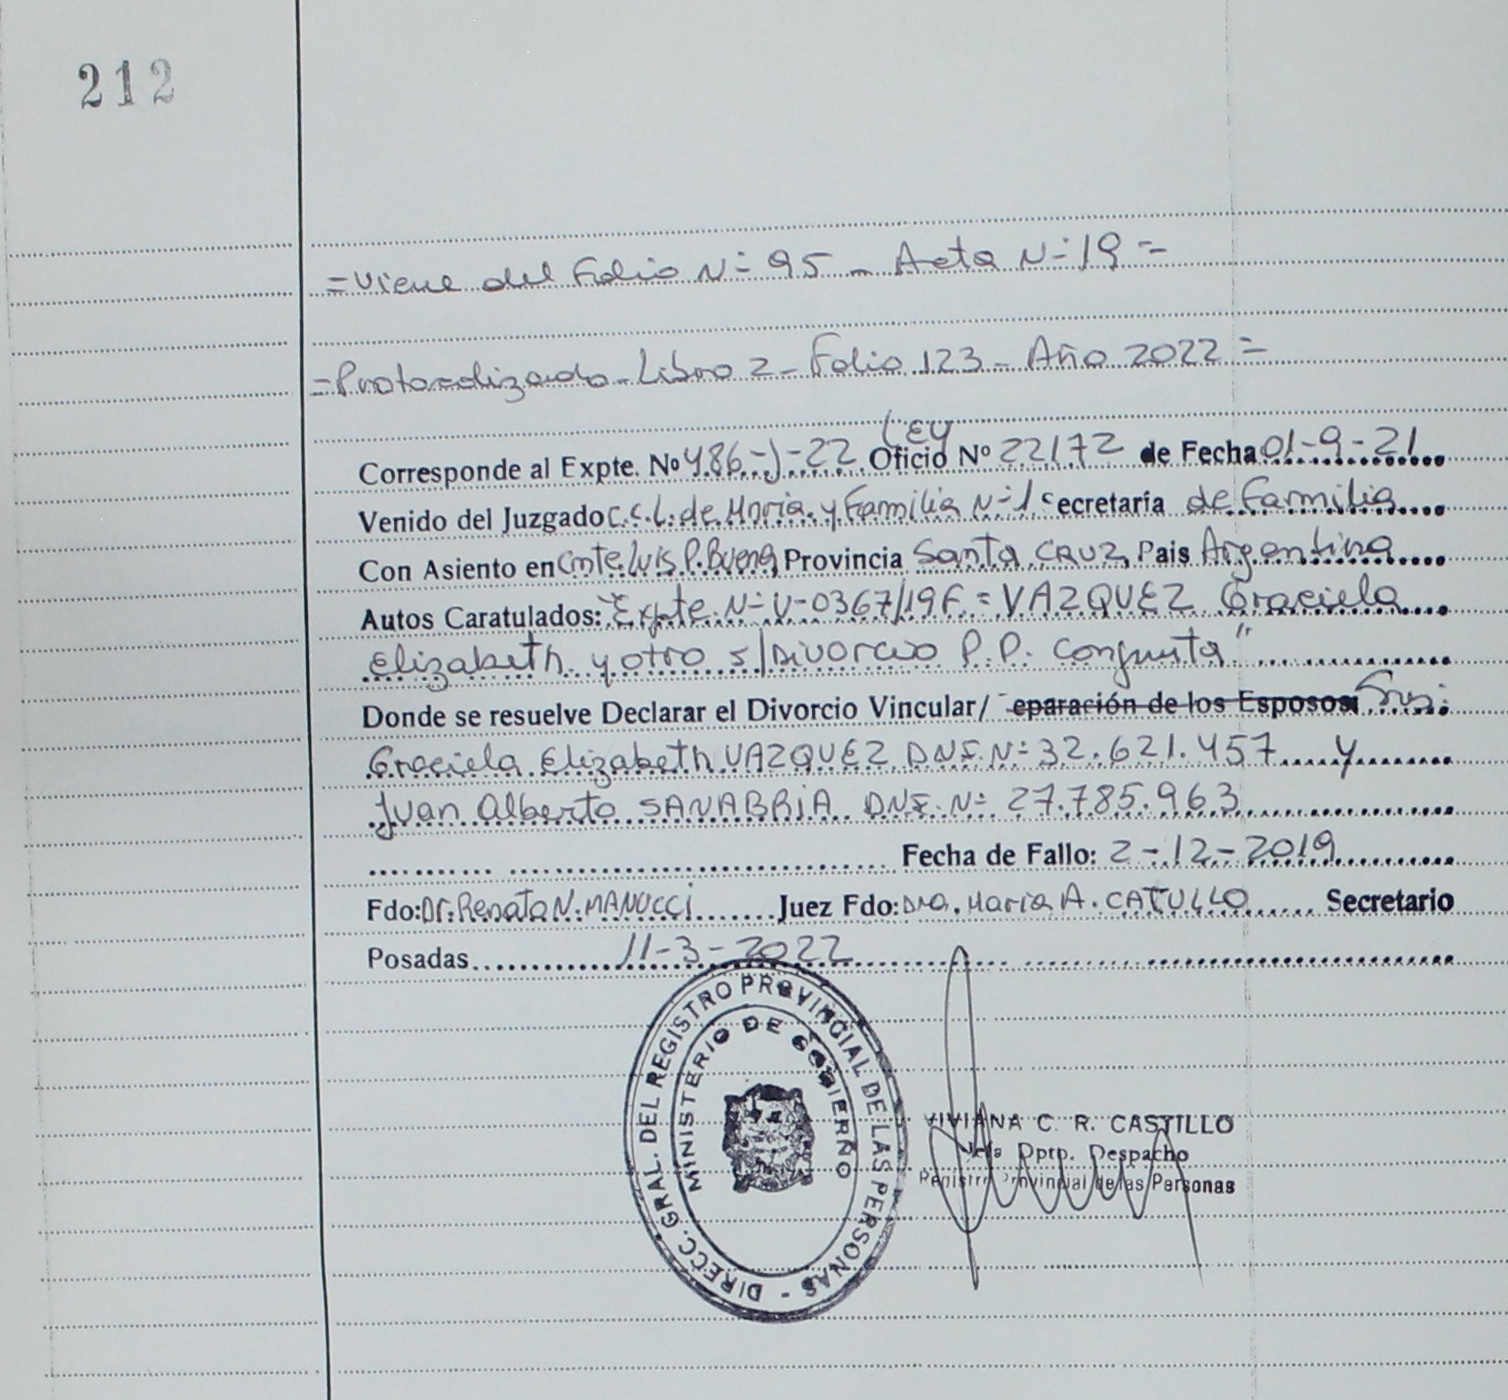 212
=Viene del Folio N= 95 - Acta N=19=
=Protocolizado - Libro 2 - Folio 123 - Año 2022=
LEY
Corresponde al Expte. Nº 486-J-22 Oficio Nº 22172 de Fecha 01-9-21
Venido del Juzgado C.C.L. de Mnría. y Familia N=1 Secretaría de Familia
Con Asiento en Cmte. Luis P. Buena Provincia Santa CRUZ Pais Argentina
Autos Caratulados: "Expte. N= V-0367/19F = VAZQUEZ Graciela
Elizabeth y otro s/Divorcio P.P. Conjunta"
Donde se resuelve Declarar el Divorcio Vincular/ eparación de los Esposos
Graciela Elizabeth VAZQUEZ DNI. N= 32.621.457 y
Juan Alberto SANABRIA DNI. N= 27.785.963
Fecha de Fallo: 2-12-2019
Fdo: Dr. Renato N. MANUCCI Juez Fdo: Dra. Maria A. CATULLO Secretario
Posadas 11-3-2022
DIRECC. GRAL. DEL REGISTRO PROVINCIAL DE LAS PERSONAS -
MINISTERIO DE GOBIERNO
VIVIANA C. R. CASTILLO
Jefa Dpto. Despacho
Registro Provincial de las Personas